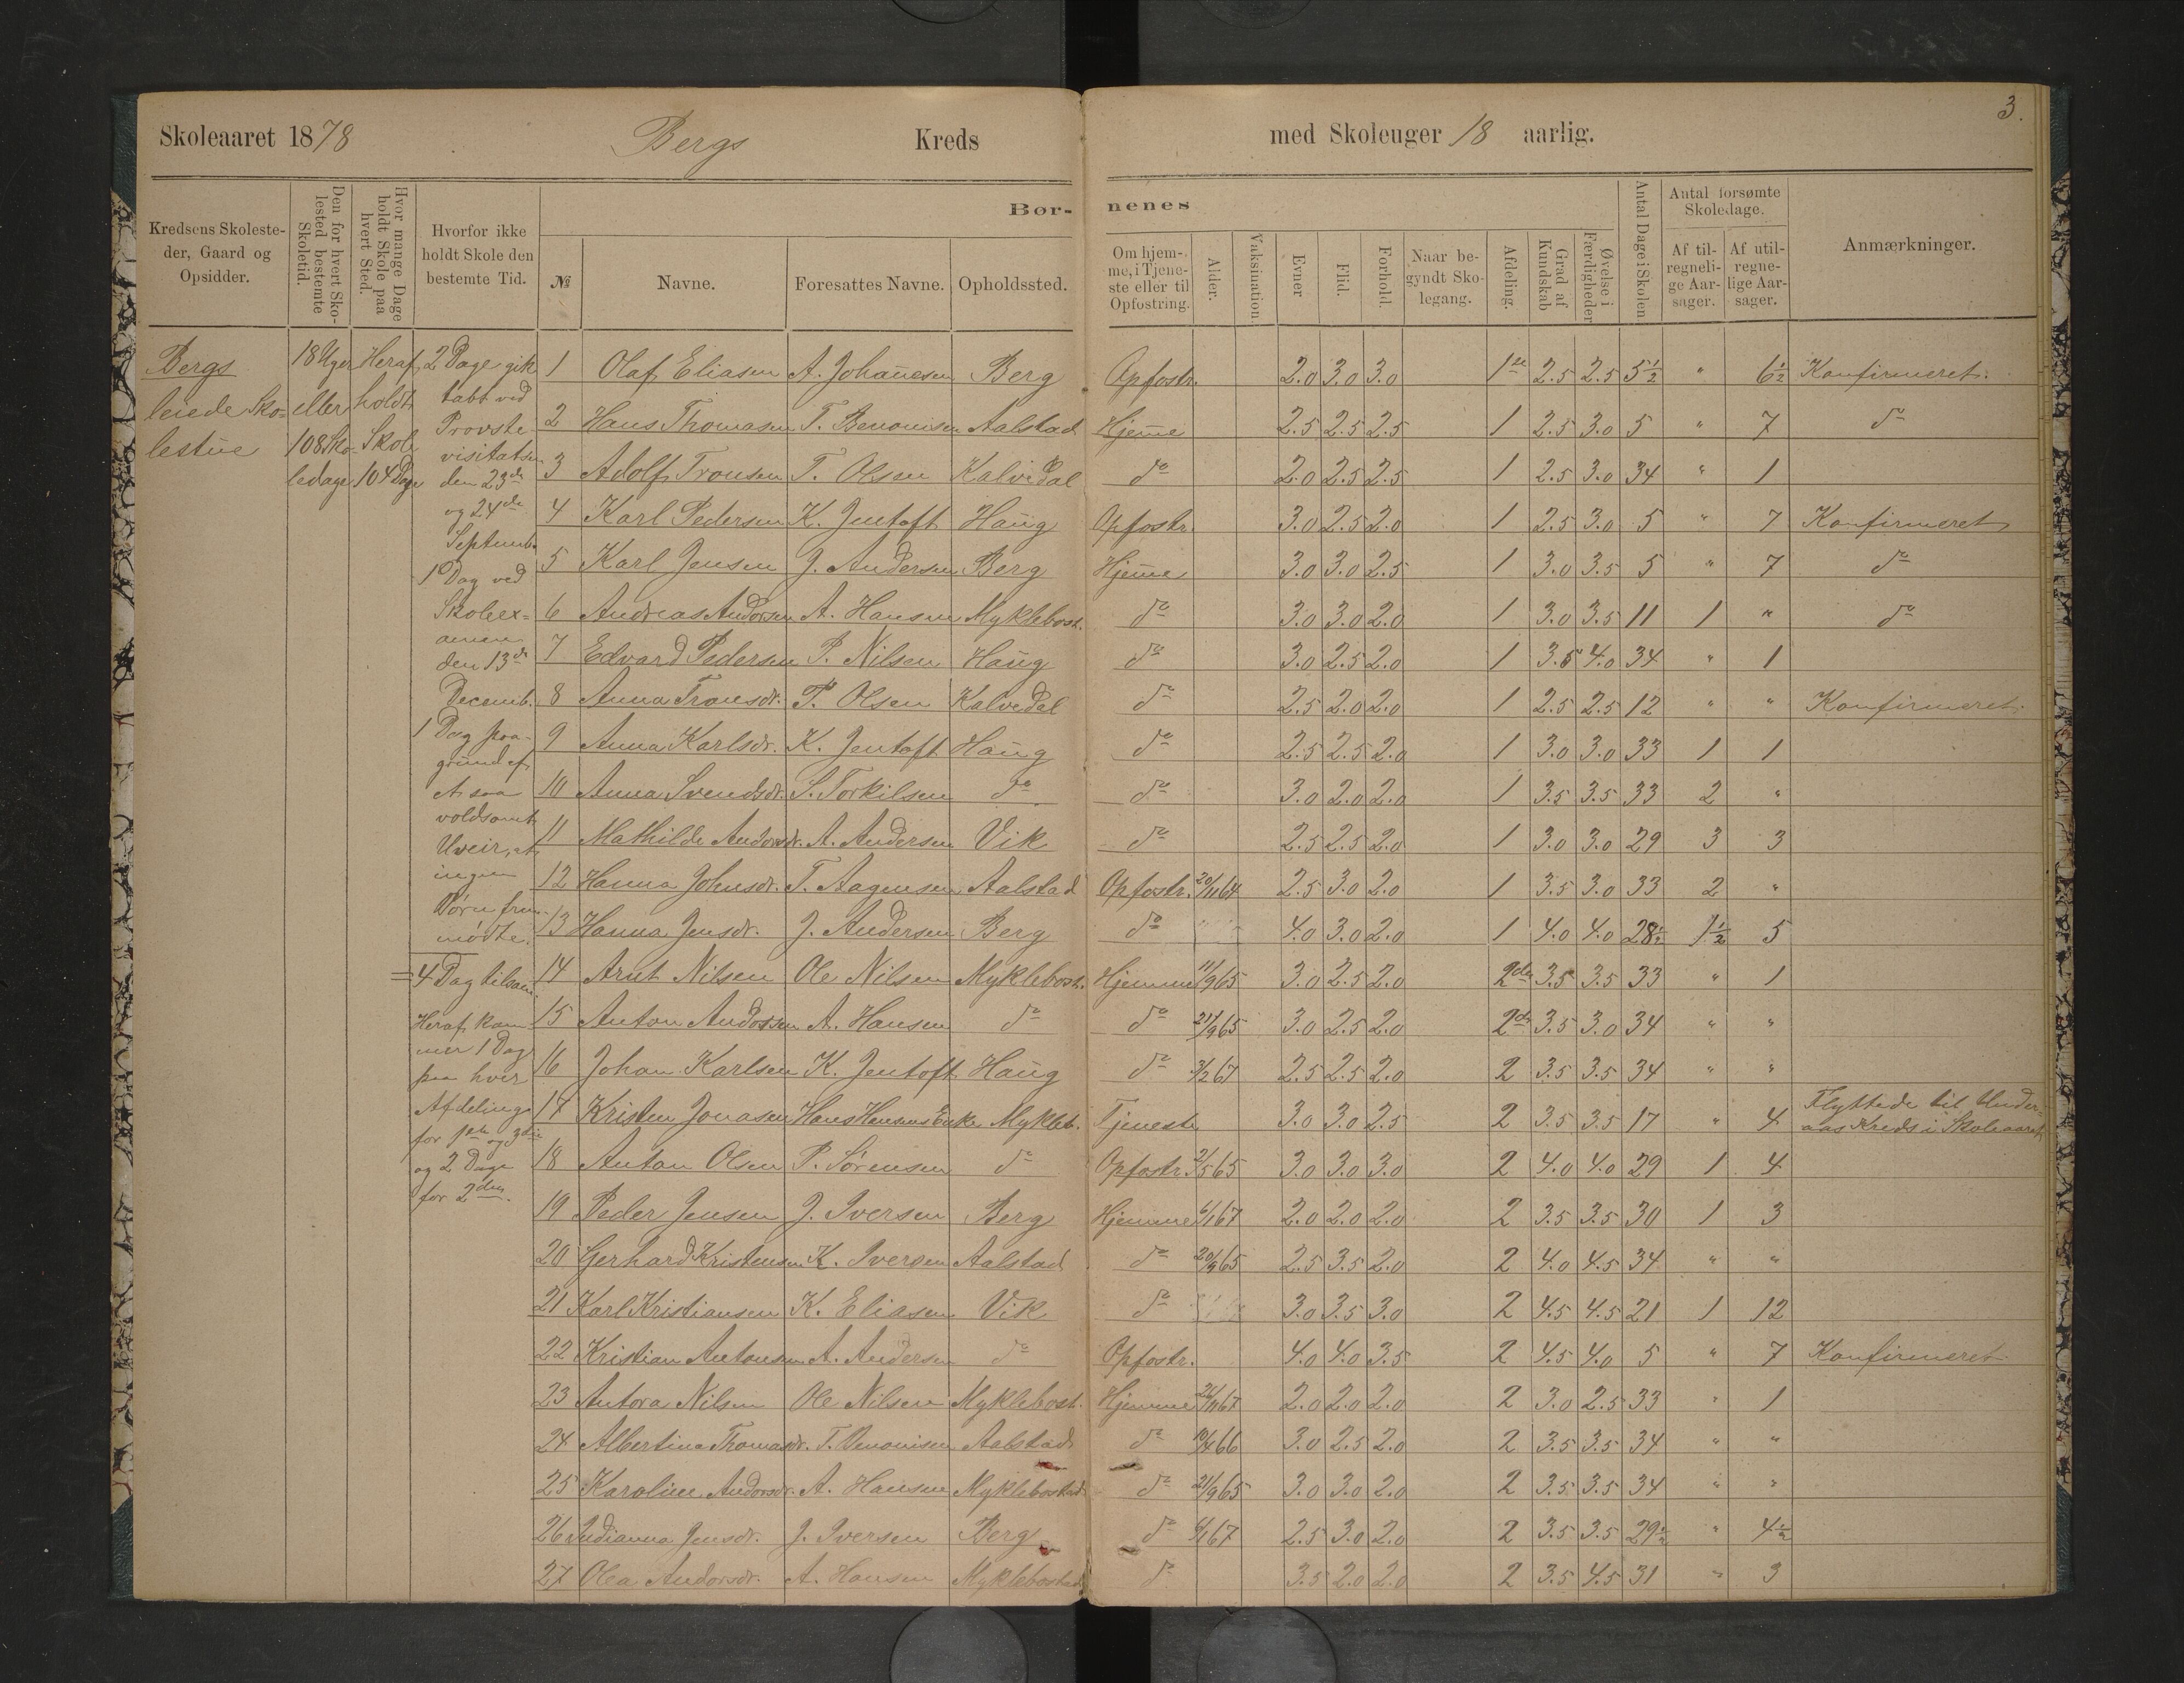 3.
Skoleaaret 1878 Bergs Kreds med Skoleuger 18 aarlig.
Kredsens Skolesteder, Gaard og Opsidder.
Den for hvert Skolested bestemte Skoletid.
Hvor mange Dage holdt Skole paa hvert Sted.
Hvorfor ikke holdt Skole den bestemte Tid.
Bør- nenes
№ Navne. Foresattes Navne. Opholdssted.
Om hjemme, i Tjeneste eller til Opfostring.
Alder. Vaksination. Evner Flid. Forhold.
Naar begyndt Skolegang.
Afdeling. Grad af Kundskab Øvelse i Færdigheder Antal Dage i Skolen
Antal forsømte Skoledage.
Af tilregnelige Aarsager. Af utilregnelige Aarsager.
Anmærkninger.
Bergs
leiede Sko-
lestue
18 Uger
eller
108 Sko-
ledage
Heraf
holdt
Skole
104 Dage
2 Dage gik
tabt ved
Provste
visitatsen
den 23de
og 24de
Septemb.
1 Dag ved
Skoleex=
amen
den 13de
Decemb.
1 Dag paa
grund af
et saa
voldsomt
Uveir, at
ingen
Børn frem
mødte.
=4 Dag tilsam.
Heraf kom
mer 1 Dag
paa hver
Afdeling
for 1ste og 3die
og 2 Dage
for 2den.
1 Olaf Eliasen A. Johannesen Berg Opfostr. 2.0 3.0 3.0 1ste 2.5 2.5 5½ " 6½ Konfirmeret.
2 Hans Thomasen T. Benonisen Aalstad Hjemme 2.5 2.5 2.5 1 2.5 3.0 5 " 7 do
3 Adolf Tronsen T. Olsen Kalvedal do 2.0 2.5 2.5 1 2.5 3.0 34 " 1
4 Karl Pedersen K. Jentoft Haug Opfostr. 3.0 2.5 2.0 1 2.5 3.0 5 " 7 Konfirmeret
5 Karl Jensen J. Andersen Berg Hjemme 3.0 3.0 2.5 1 3.0 3.5 5 " 7 do
6 Andreas Andorsen A. Hansen Myklebost. do 3.0 3.0 2.0 1 3.0 3.5 11 1 " do
7 Edvard Pedersen P. Nilsen Haug do 3.0 2.5 2.0 1 3.5 4.0 34 " 1
8 Anna Tronsdr. T. Olsen Kalvedal do 2.5 2.0 2.0 1 2.5 2.5 12 " " Konfirmeret.
9 Anna Karlsdr. K. Jentoft Haug do 2.5 2.5 2.0 1 3.0 3.0 33 1 1
10 Anna Svendsdr. S. Torkilsen do do 3.0 2.0 2.0 1 3.5 3.5 33 2 "
11 Mathilde Andorsdr. A. Andersen Vik do 2.5 2.5 2.0 1 3.0 3.0 29 3 3
12 Hanna Johnsdr. T. Aagensen Aalstad Opfostr. 20/11 64 2.5 3.0 2.0 1 3.5 3.0 33 2 "
13 Hanna Jensdr. J. Andersen Berg do 4.0 3.0 2.0 1 4.0 4.0 28½ 1½ 5
14 Arnt Nilsen Ole Nilsen Myklebost. Hjemme 11/9 65 3.0 2.5 2.0 2den 3.5 3.5 33 " 1
15 Anton Andorsen A. Hansen do do 21/9 65 3.0 2.5 2.0 2den 3.5 3.0 34 " "
16 Johan Karlsen K. Jentoft Haug do 3/2 67 2.5 2.5 2.0 2 3.5 3.5 34 " "
17 Kristen Jonasen Hans Hansens Enke Mykleb. Tjeneste 3.0 3.0 2.5 2 3.5 3.5 17 " 4 Flyttede til Under-
aas Kreds i Skoleaaret
18 Anton Olsen P. Sørensen do Opfostr. 2/5 65 3.0 3.0 3.0 2 4.0 4.0 29 1 4
19 Peder Jensen J. Iversen Berg Hjemme 6/1 67 2.0 2.0 2.0 2 3.5 3.5 30 1 3
20 Gerhard Kristensen K. Iversen Aalstad do 20/9 65 2.5 3.5 2.0 2 4.0 4.5 34 " "
21 Karl Kristiansen K. Eliasen Vik do 3.0 3.5 3.0 2 4.5 4.5 21 1 12
22 Kristian Antonsen A. Andersen do Opfostr. 4.0 4.0 3.5 2 4.5 4.0 5 " 7 Konfirmeret
23 Antora Nilsen Ole Nilsen Myklebost. Hjemme 26/11 67 2.0 2.0 2.0 2 3.0 2.5 33 " 1
24 Albertina Thomasdr. T. Benonisen Aalstad do 10/4 66 3.0 2.5 2.0 2 3.5 3.5 34 " "
25 Karoline Andorsdr. A. Hansen Myklebostad do 21/9 65 3.0 3.0 2.0 2 3.5 3.5 34 " "
26 Indianna Jensdr. J. Iversen Berg do 6/1 67 2.5 3.0 2.0 2 3.5 3.5 29½ " 4½
27 Olea Andorsdr. A. Hansen Myklebostad do 3.5 2.0 2.0 2 3.5 4.5 31 " 3